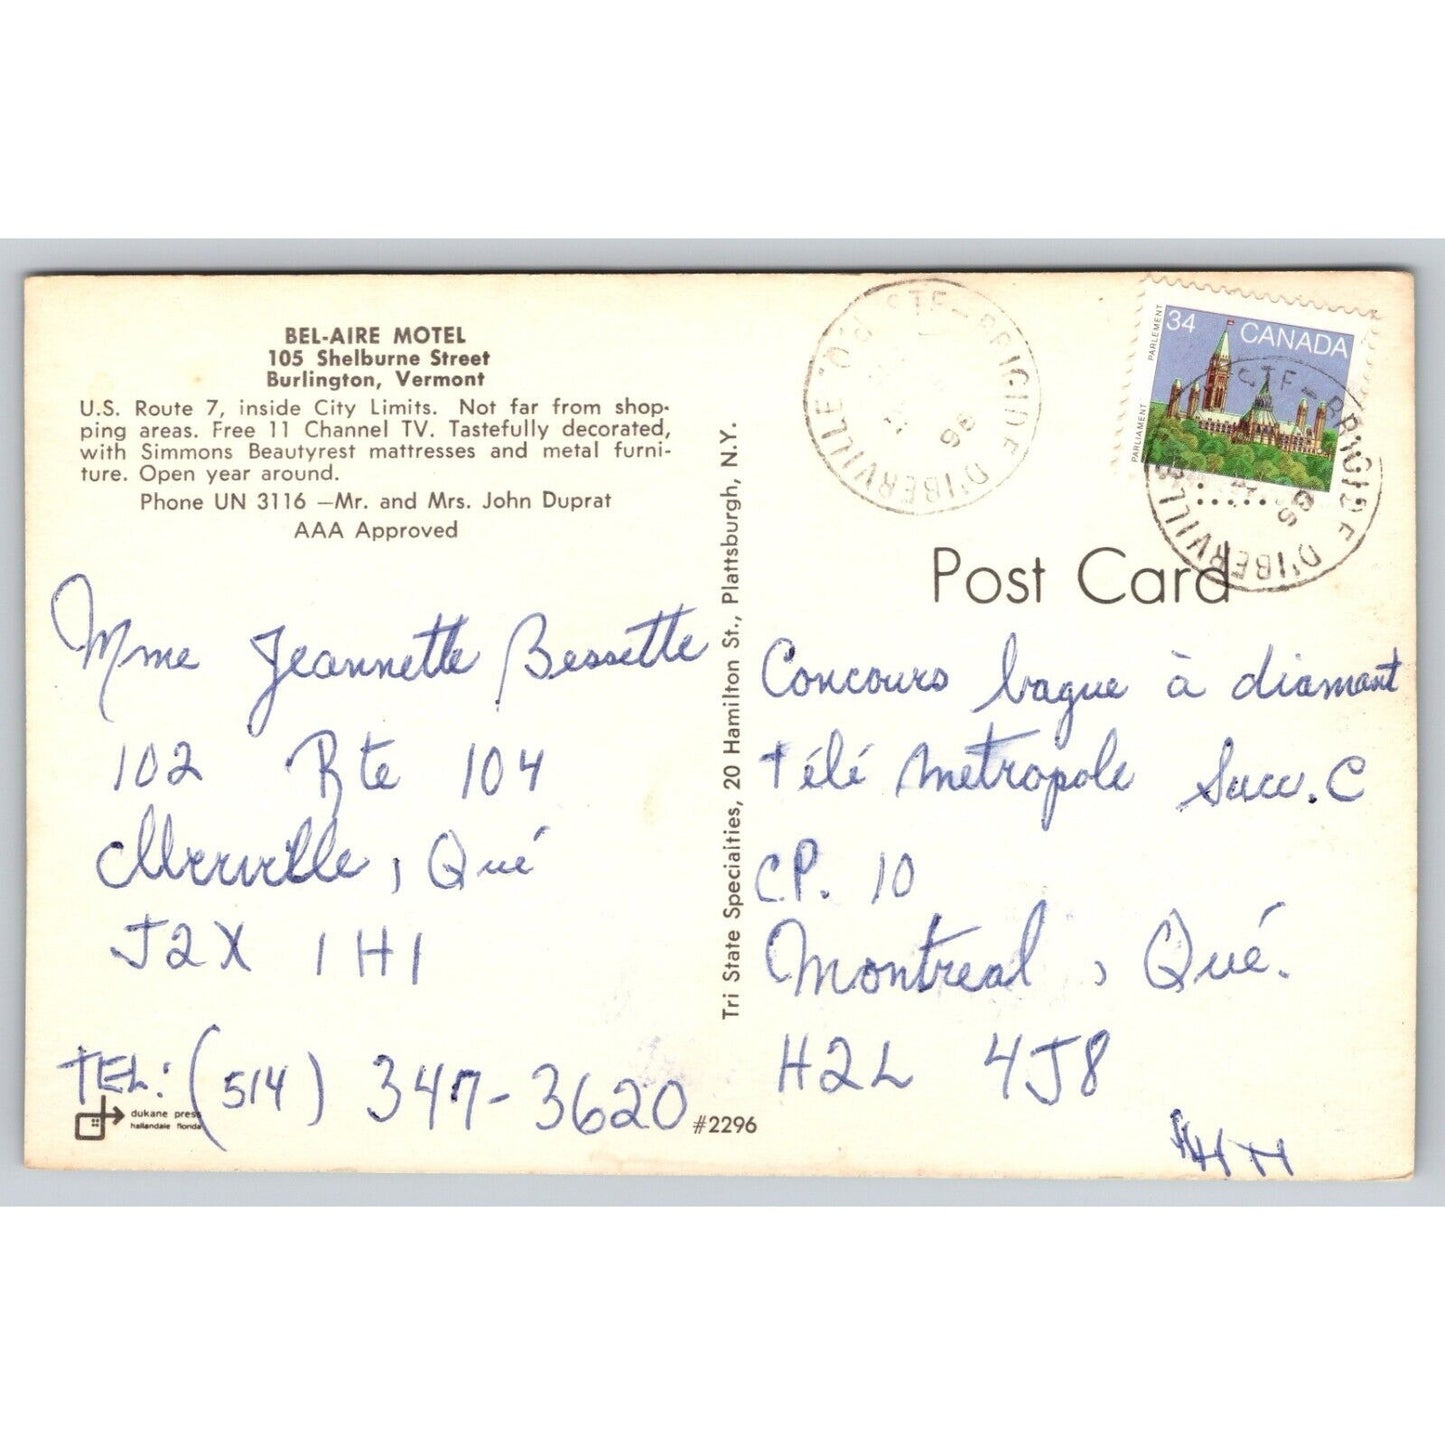 BEL-AIRE MOTEL
105 Shelburne Street
Burlington, Vermont
U.S. Route 7, inside City Limits. Not far from shop-
ping areas. Free 11 Channel TV. Tastefully decorated,
with Simmons Beautyrest mattresses and metal furni-
ture. Open year around.
Phone UN 3116 —Mr. and Mrs. John Duprat
AAA Approved
Mme Jeannette Bessette
102 Rte 104
, Qué
J2X 1H1
TEL: (514) 347-3620
dukane press
hallandale florida
#2296
Tri State Specialties, 20 Hamilton St., Plattsburgh, N.Y.
STE-BRIGIDE D'IBERVILLE P.Q.
34 CANADA
PARLIAMENT PARLEMENT
STE-BRIGIDE D'IBERVILLE
Post Card
Concours bague à diamant
Télé Métropole Succ. C
C.P. 10
Montreal, Qué.
H2L 4J8